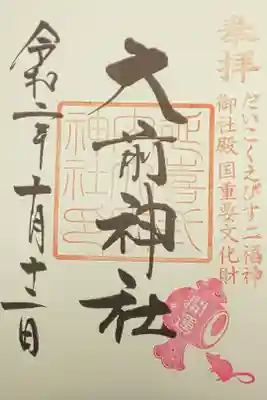 奉拝
だいこくえびす二福神
御社殿国重要文化財
大前神社
令和二年十月十二日
開運